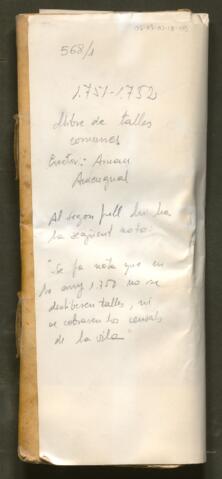 568/1
1751-1752
Llibre de talles
comunes
Exactor: Arnau
Amengual
Al segon full hi ha
la següent nota:
"Se fa nota que en
lo any 1750 no se
destiberen talles, ni
se cobraren los censals
de la vila"